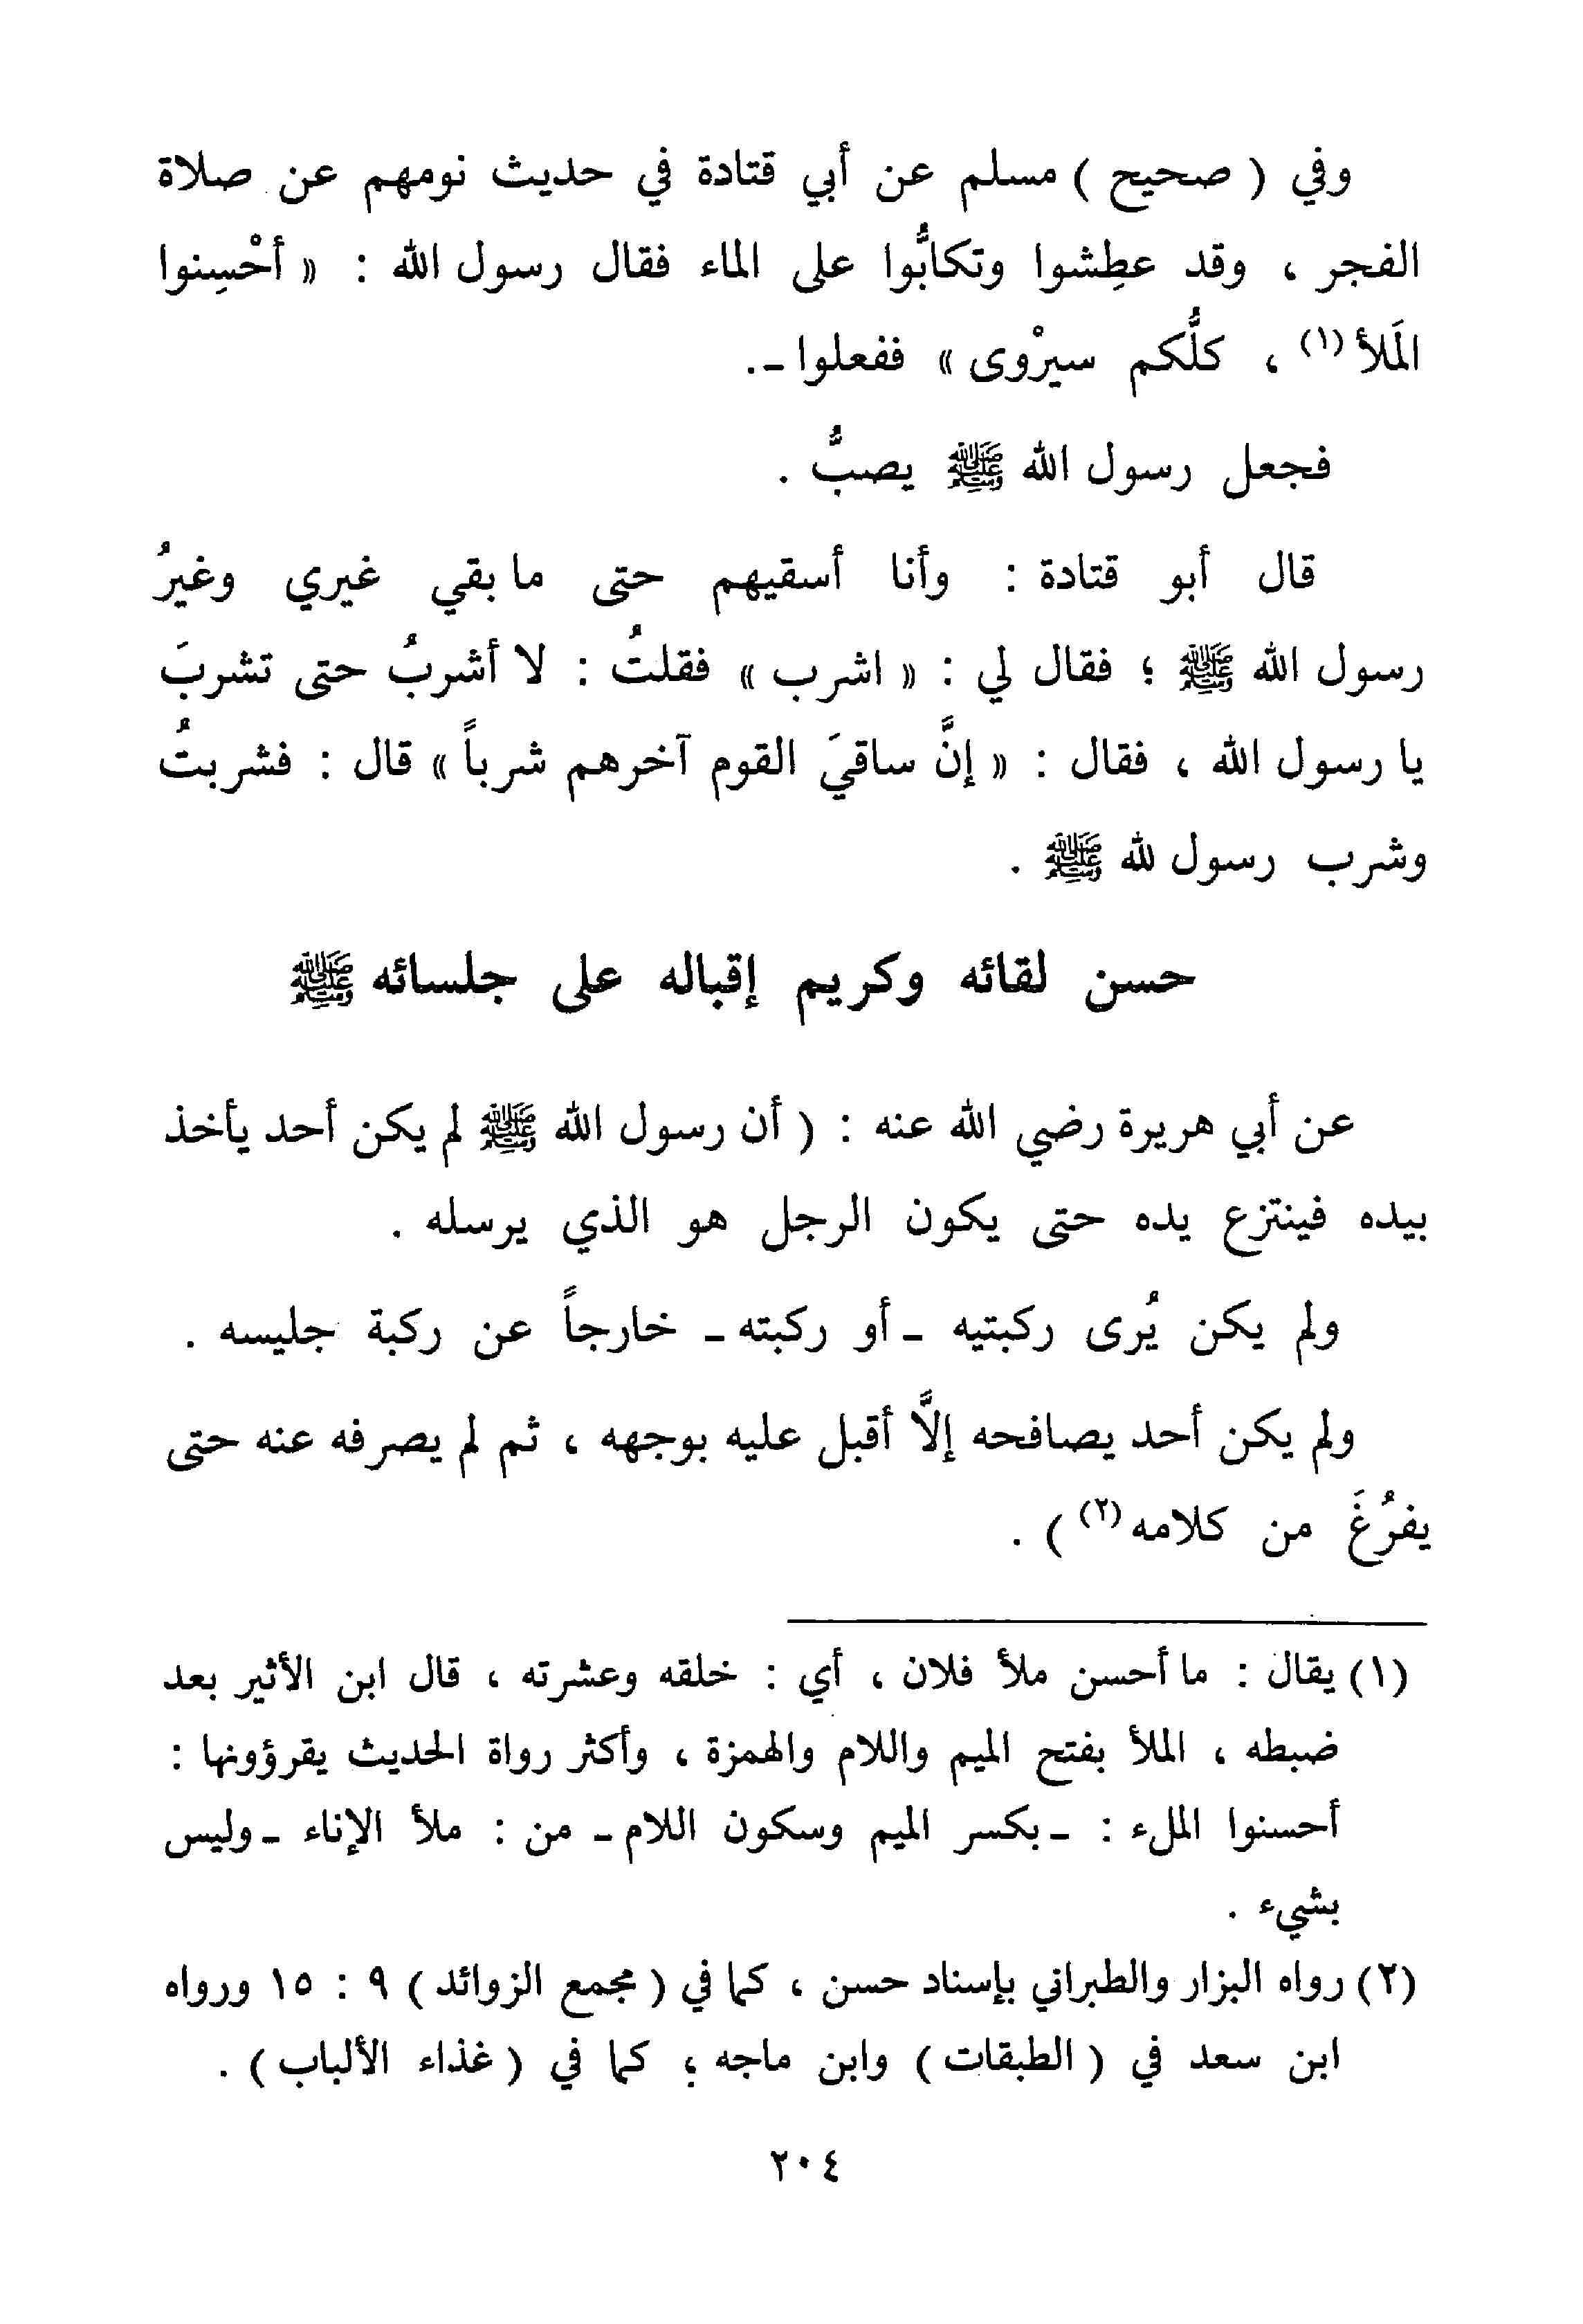 وفي ( صحيح ) مسلم عن أبي قتادة في حديث نومهم عن صلاة
الفجر ، وقد عطِشوا وتكابُّوا على الماء فقال رسول الله : « أحْسِنوا
المَلأ(١) ، كلُّكم سيرْوى » ففعلوا ـ.
فجعل رسول الله ﷺ يصبُّ .
قال أبو قتادة : وأنا أسقيهم حتى ما بقي غيري وغيرُ
رسول الله ﷺ ؛ فقال لي : « اشرب » فقلتُ : لا أشربُ حتى تشربَ
يا رسول الله ، فقال : « إنَّ ساقيَ القوم آخرهم شرباً » قال : فشربتُ
وشرب رسول لله ﷺ .
حسن لقائه وكريم إقباله على جلسائه ﷺ
عن أبي هريرة رضي الله عنه : ( أن رسول الله ﷺ لم يكن أحد يأخذ
بيده فينتزع يده حتى يكون الرجل هو الذي يرسله .
ولم يكن يُرى ركبتيه ـ أو ركبته ـ خارجاً عن ركبة جليسه .
ولم يكن أحد يصافحه إلاَّ أقبل عليه بوجهه ، ثم لم يصرفه عنه حتى
يفرُغَ من كلامه(٢) ) .
(١) يقال : ما أحسن ملأ فلان ، أي : خلقه وعشرته ، قال ابن الأثير بعد
ضبطه ، الملأ بفتح الميم واللام والهمزة ، وأكثر رواة الحديث يقرؤونها :
أحسنوا الملء : ـ بكسر الميم وسكون اللام ـ من : ملأ الإناء ـ وليس
بشيء .
(٢) رواه البزار والطبراني بإسناد حسن ، كما في ( مجمع الزوائد ) ٩ : ١٥ ورواه
ابن سعد في ( الطبقات ) وابن ماجه ؛ كما في ( غذاء الألباب ) .
٢٠٤